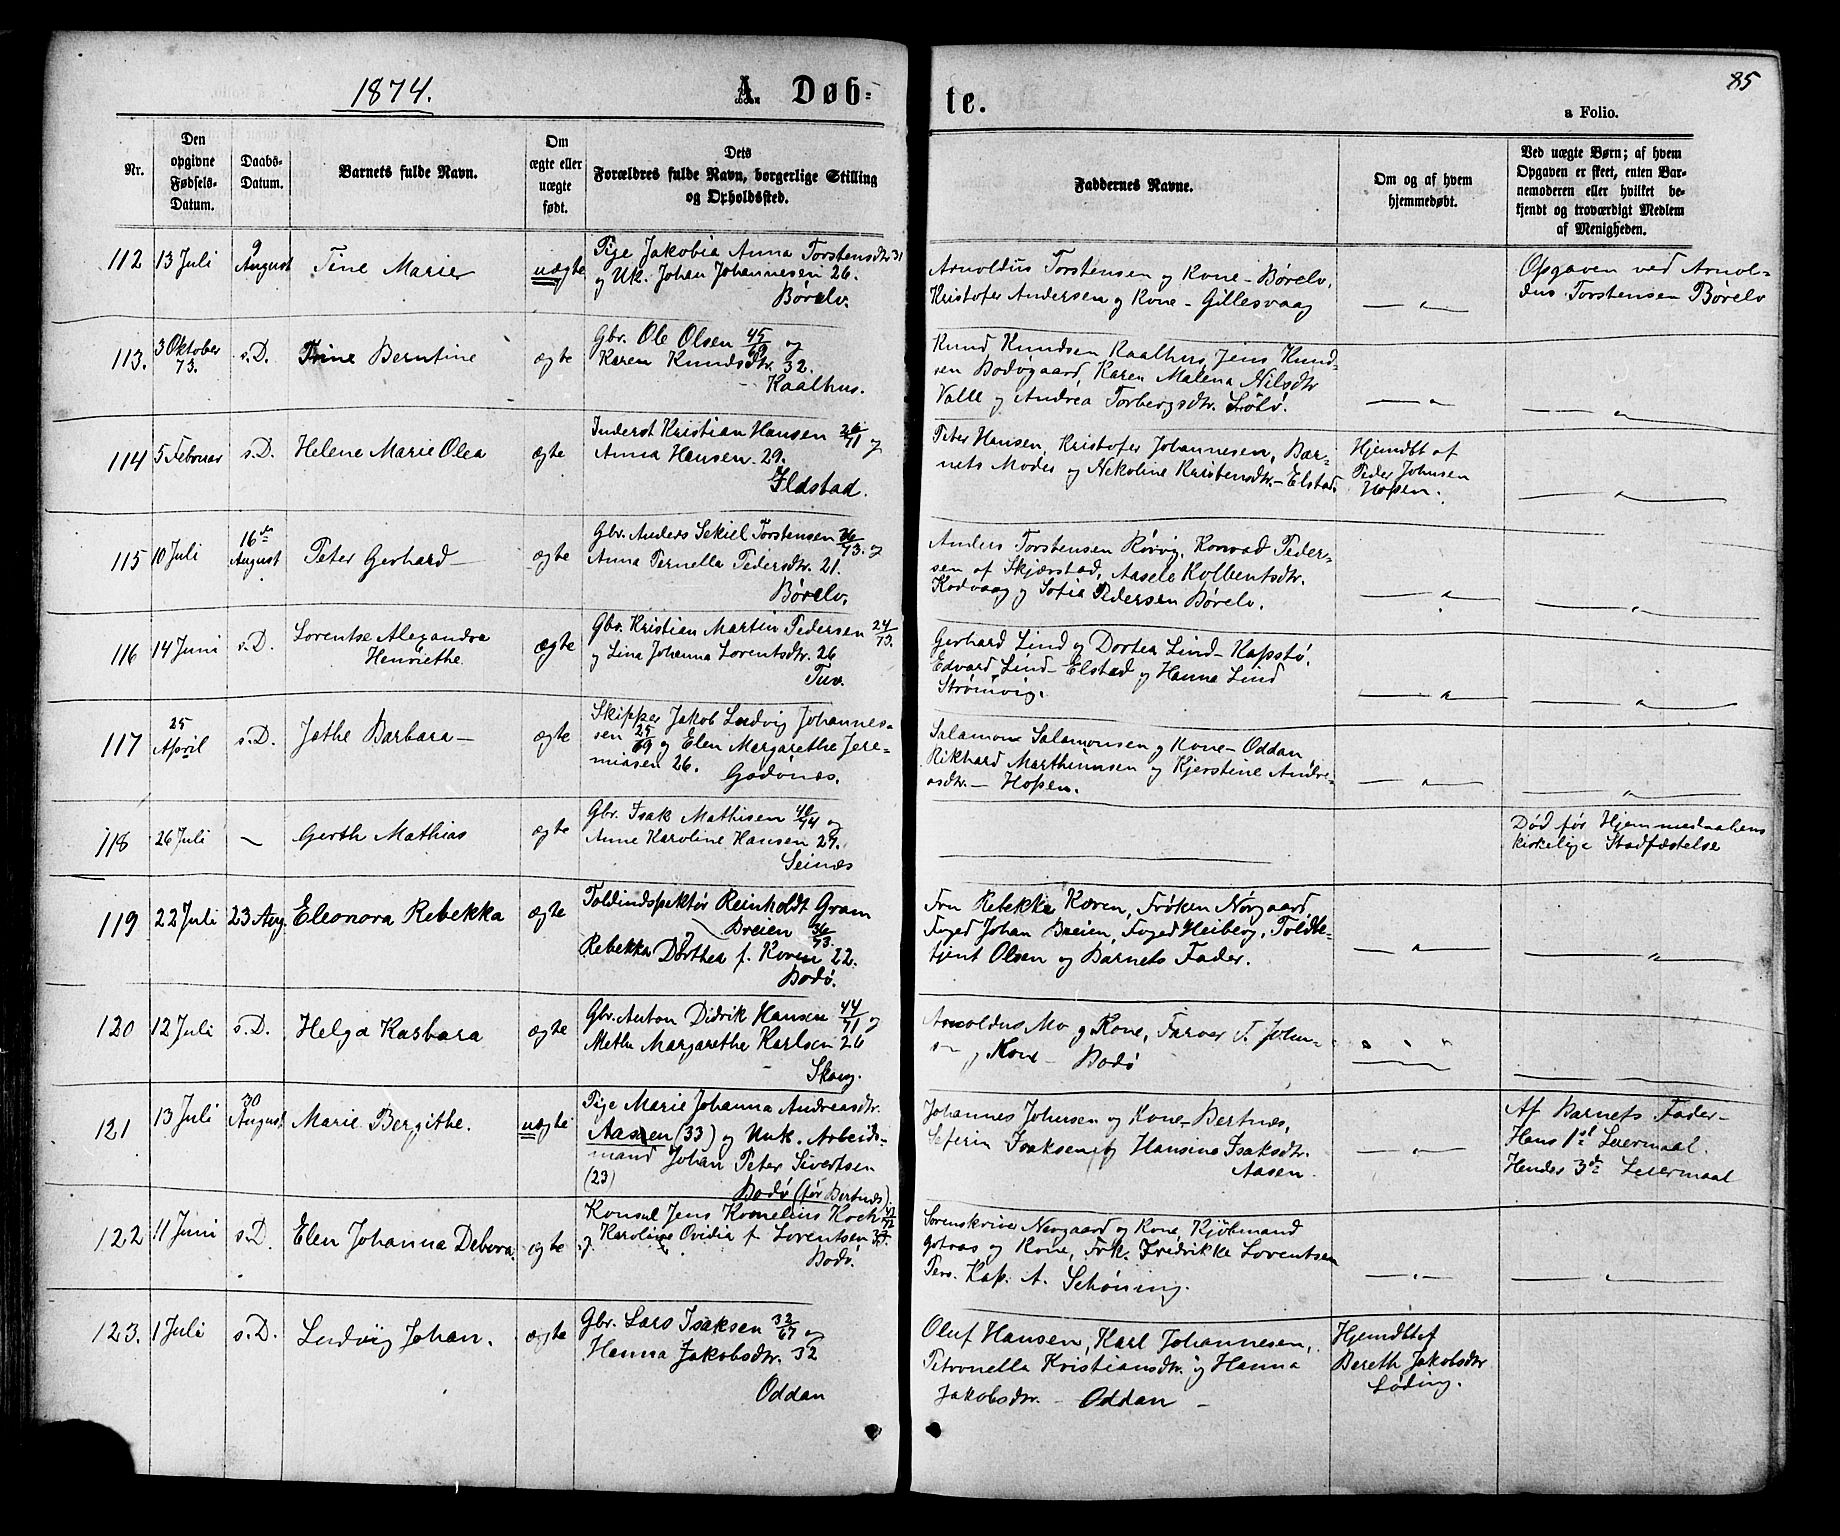 1874.
A. Døb-
te.
85
a Folio.
Nr.
Den
opgivne
Fødsels-
Datum.
Daabs-
Datum.
Barnets fulde Navn.
Om
ægte eller
uægte
født.
Dets
Forældres fulde Navn, borgerlige Stilling
og Opholdssted.
Faddernes Navne.
Om og af hvem
hjemmedøbt.
Ved uægte Børn; af hvem
Opgaven er skeet, enten Bar-
nemoderen eller hvilket be-
kjendt og troværdigt Medlem
af Menigheden.
112 13 Juli
9
August
Tine Marie
uægte
Pige Jakobia Anna Torstensdtr 31
og Uk. Johan Johannesen 26.
Børelv.
Arnoldus Torstensen og Kone - Børelv,
Kristofer Andersen og Kone - Gillesvaag
— " —
Opgaven ved Arnol-
dus Torstensen Børelv
113.
3 Oktober
73.
s.D.
Trine Berntine
ægte
Gbr. Ole Olsen 45/69 og
Karen Knudsdtr. 32.
- Kaalhus.
Knud Knudsen Kaalhus, Jens Knud-
sen Bodøgaard, Karen Malena Nilsdtr
Valle og Andrea Torbergsdtr. Løbv.
— " —
— " —
114 5 Februar s.D. Helene Marie Olea
ægte
Inderst Kristian Hansen 26/71 og
Anna Hansen 29.
Ildstad.
Peter Hansen, Kristofer Johannesen, Bar-
nets Moder og Nekoline Kristensdtr. - Elstad.
Hjemdbt af
Peder Johnsen
Hopen.
— " —
115 10 Juli
16de
August
Peter Gerhard —
ægte
Gbr. Anders Sekiel Torstensen 36/73. og
Anna Pernella Pedersdtr. 21.
Børelv.
Anders Torstensen Rørvig, Konrad Peder-
sen af Skjærstad, Aasele Kolbentsdtr.
Kodvaag og Sofia Pedersen Børelv.
— " —
— " —
116 14 Juni s.D.
Lorentse Alexandra
Henriethe.
ægte
Gbr. Kristian Martin Pedersen 24/73.
og Lina Johanna Lorentsdtr. 26
Tuv.
Gerhard Lind og Dortea Lind - Kapstø,
Edvard Lind - Elstad og Hanna Lind
Strømvig.
— " —
— " —
117
25
April
s.D. Jathe Barbara —
ægte
Skipper Jakob Ludvig Johannes-
sen 25/69 og Elen Margarethe Jere-
miasen 26.
Godønæs.
Salamon Salamonsen og Kone - Oddan
Rikhard Marthinusen og Kjerstine Andre-
asdtr. - Hopen.
— " —
— " —
118 26 Juli —
Gerth Mathias
ægte
Gbr. Isak Mathisen 40/74 og
Anne Karoline Hansen 29.
Seinæs
Død før Hjemmedaabens
kirkelige Stadfæstelse
119 22 Juli 23 Aug. Eleonora Rebekka
ægte
Toldindspektør Reinholdt Gram
Breien 36/73. og
Rebekka Dorthea f. Koren 22.
Bodø.
Fru Rebekka Koren, Frøken Norgaard,
Foged Johan Breien, Foged Heiberg, Toldbe-
tjent Olsen og Barnets Fader.
— " —
— " —
120 12 Juli s.D. Helga Kasbara
ægte
Gbr. Anton Didrik Hansen 44/71 og
Methe Margarethe Karlsen 26
Skaug.
Arnoldus Mo og Kone, Farver T. John-
sen og Kone - Bodø
121 13 Juli
30
August
Marie Bergithe.
uægte
Pige Marie Johanna Andreasdtr.
Aasen (33) og Unk. Arbeids-
mand Johan Peter Sivertsen
(23)
Bodø (før Bertnæs)
Johannes Johnsen og Kone - Bertnæs,
Seferin Isaksen og Hansine Isaksdtr.
Aasen.
— " —
Af Barnets Fader -
Hans 1ste Leiermaal.
Hendes 3de Leiermaal
122 11 Juni s.D. Elen Johanna Debora.
ægte
Konsul Jens Kornelius Koch 42/72
og Karoline Ovidia f. Lorentsen 37.
Bodø.
Sorenskriver Norgaard og Kone, Kjøbmand
Gotaas og Kone, Frk. Fredrikke Lorentsen
Pers. Kap. A. Schöning.
— " —
— " —
123. 1 Juli s.D. Ludvig Johan.
ægte
Gbr. Lars Isaksen 32/67 og
Hanna Jakobsdtr. 32
Oddan
Oluf Hansen, Karl Johannesen,
Petronella Kristiansdtr. og Hanna
Jakobsdtr. - Oddan -
Hjemdbt af
Bereth Jakobsdtr
Løding.